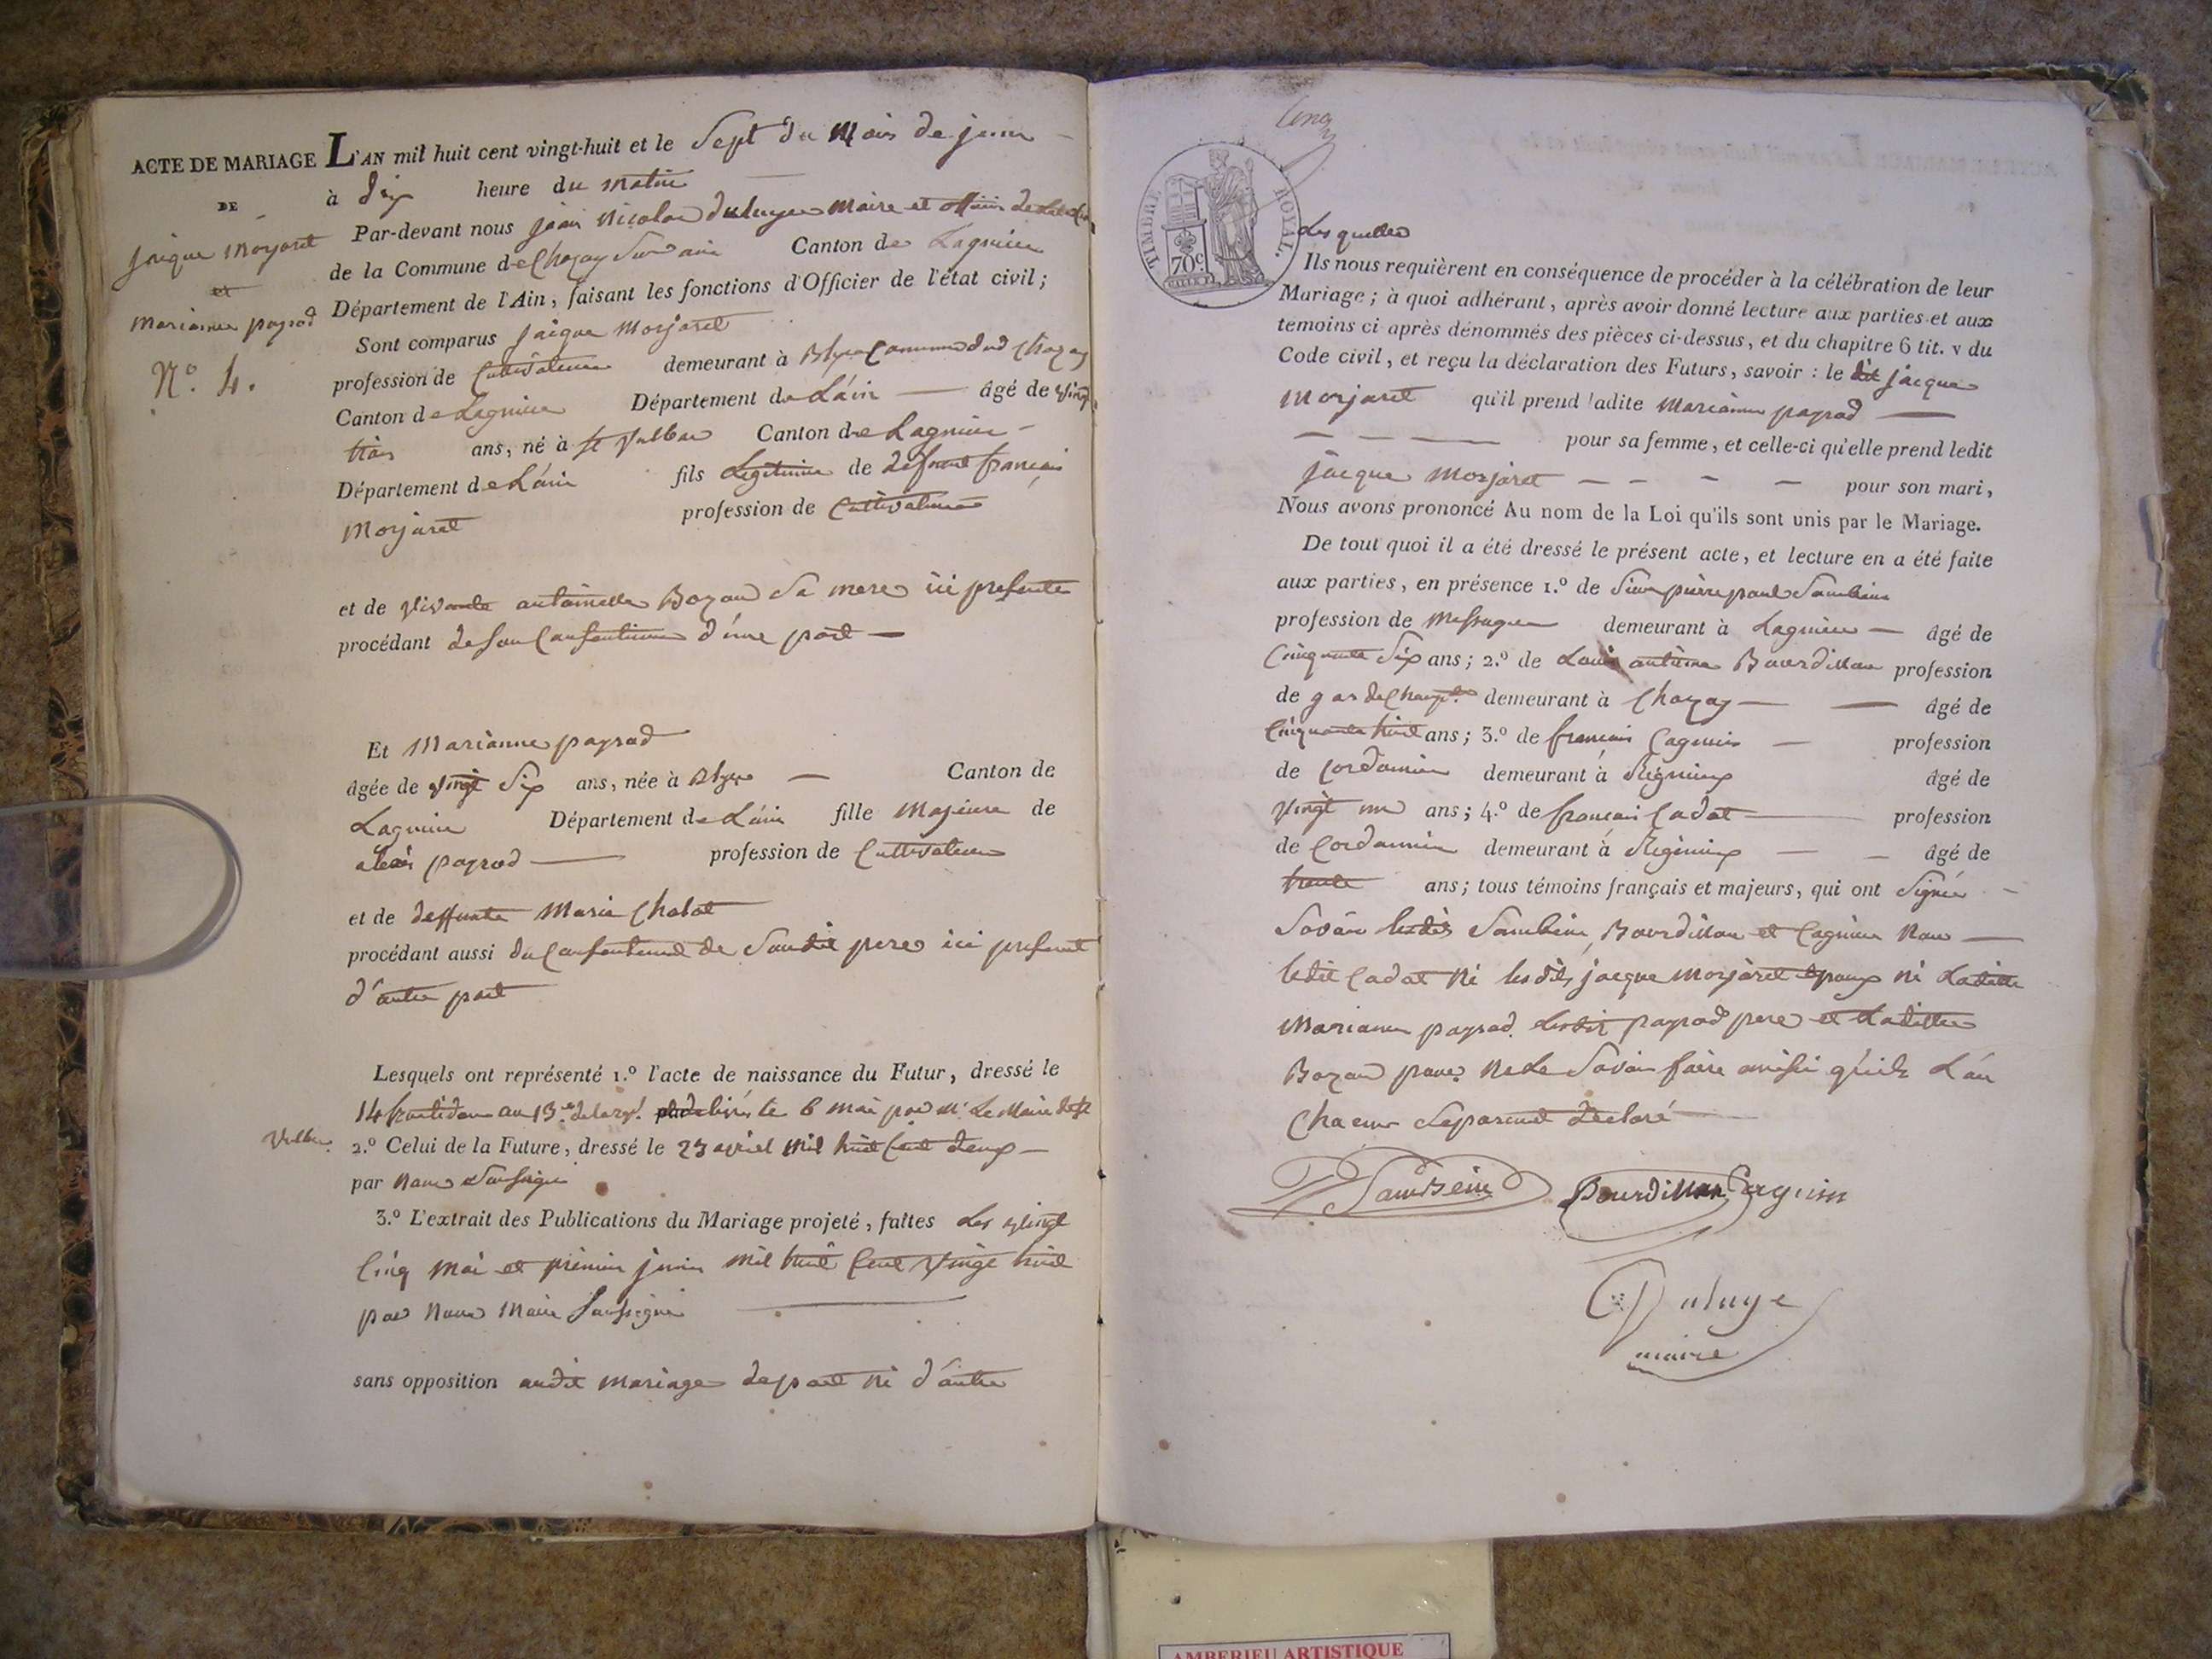 ACTE DE MARIAGE L'AN mil huit cent vingt-huit et le Sept du Mois de juin
DE
à dix heure du matin
jaique morjaret
et
marianne payrad
N.º 4.
Par-devant nous jean Nicolas duluye maire et officier de
de la Commune de Chazay Sur ain Canton de Lagnieu
Département de l'Ain, faisant les fonctions d'Officier de l'état civil;
Sont comparus jaique Morjaret
profession de Cultivateur demeurant à Blye Commune dud Chazay
Canton de Lagnieu Département de L'ain âgé de vingt
trois ans, né à st Vulbas Canton de Lagnieu
Département de L'ain fils Legitime de defunt français
Morjaret profession de Cultivateur
et de vivante antoinette Bozau Sa mere ici presente
procédant de son Consentement d'une part
Et Marianne payrad
âgée de vingt Six ans, née à Blye Canton de
Lagnieu Département de L'ain fille Majeure de
alexis payrad profession de Cultivateur
et de deffunte Marie Chalat
procédant aussi du Consentement de Soudit pere ici present
d'autre part
Lesquels ont représenté 1.º l'acte de naissance du Futur, dressé le
14 an 13 delivré le 6 mai par Mr Le Maire de st
Vulbas.
2.º Celui de la Future, dressé le 23 avril mil huit Cent deux
par Nous Soussigné
3.º L'extrait des Publications du Mariage projeté, faites Les vingt
Cinq mai et premier juin mil huit Cent vingt huit
par Nous Maire Soussigné
sans opposition audit mariage de part ni d'autre
TIMBRE ROYAL.
70c.
Lesquelles
Ils nous requièrent en conséquence de procéder à la célébration de leur
Mariage; à quoi adhérant, après avoir donné lecture aux parties et aux
temoins ci après dénommés des pièces ci-dessus, et du chapitre 6 tit. v du
Code civil, et reçu la déclaration des Futurs, savoir : le dit jacque
Morjaret qu'il prend ladite Marianne payrad
pour sa femme, et celle-ci qu'elle prend ledit
jacque Morjaret pour son mari,
Nous avons prononcé Au nom de la Loi qu'ils sont unis par le Mariage.
De tout quoi il a été dressé le présent acte, et lecture en a été faite
aux parties, en présence 1.º de Sieur pierre paul Sambein
profession de Messager demeurant à Lagnieu âgé de
Cinquante Six ans; 2.º de Louis antoine Bourdillon profession
de gardechampt. demeurant à Chazay âgé de
Cinquante huit ans; 3.º de français Cagnin profession
de Cordonnier demeurant à Rignieux âgé de
vingt un ans; 4.º de français Cadat profession
de Cordonnier demeurant à Rignieux âgé de
trente ans; tous témoins français et majeurs, qui ont Signé
Savoir lesdits Sambein, Bourdillon et Cagnin Non
ledit Cadat Ni lesdits jacque Morjaret epoux ni Ladite
Marianne payrad Ledit payrad pere et Ladite
Bozau pour Ne Le Savoir faire ainsi qu'ils L'on
Chacun Separement declaré
Sambein Bourdillon Cagnin
Duluye
maire
AMBERIEU ARTISTIQUE